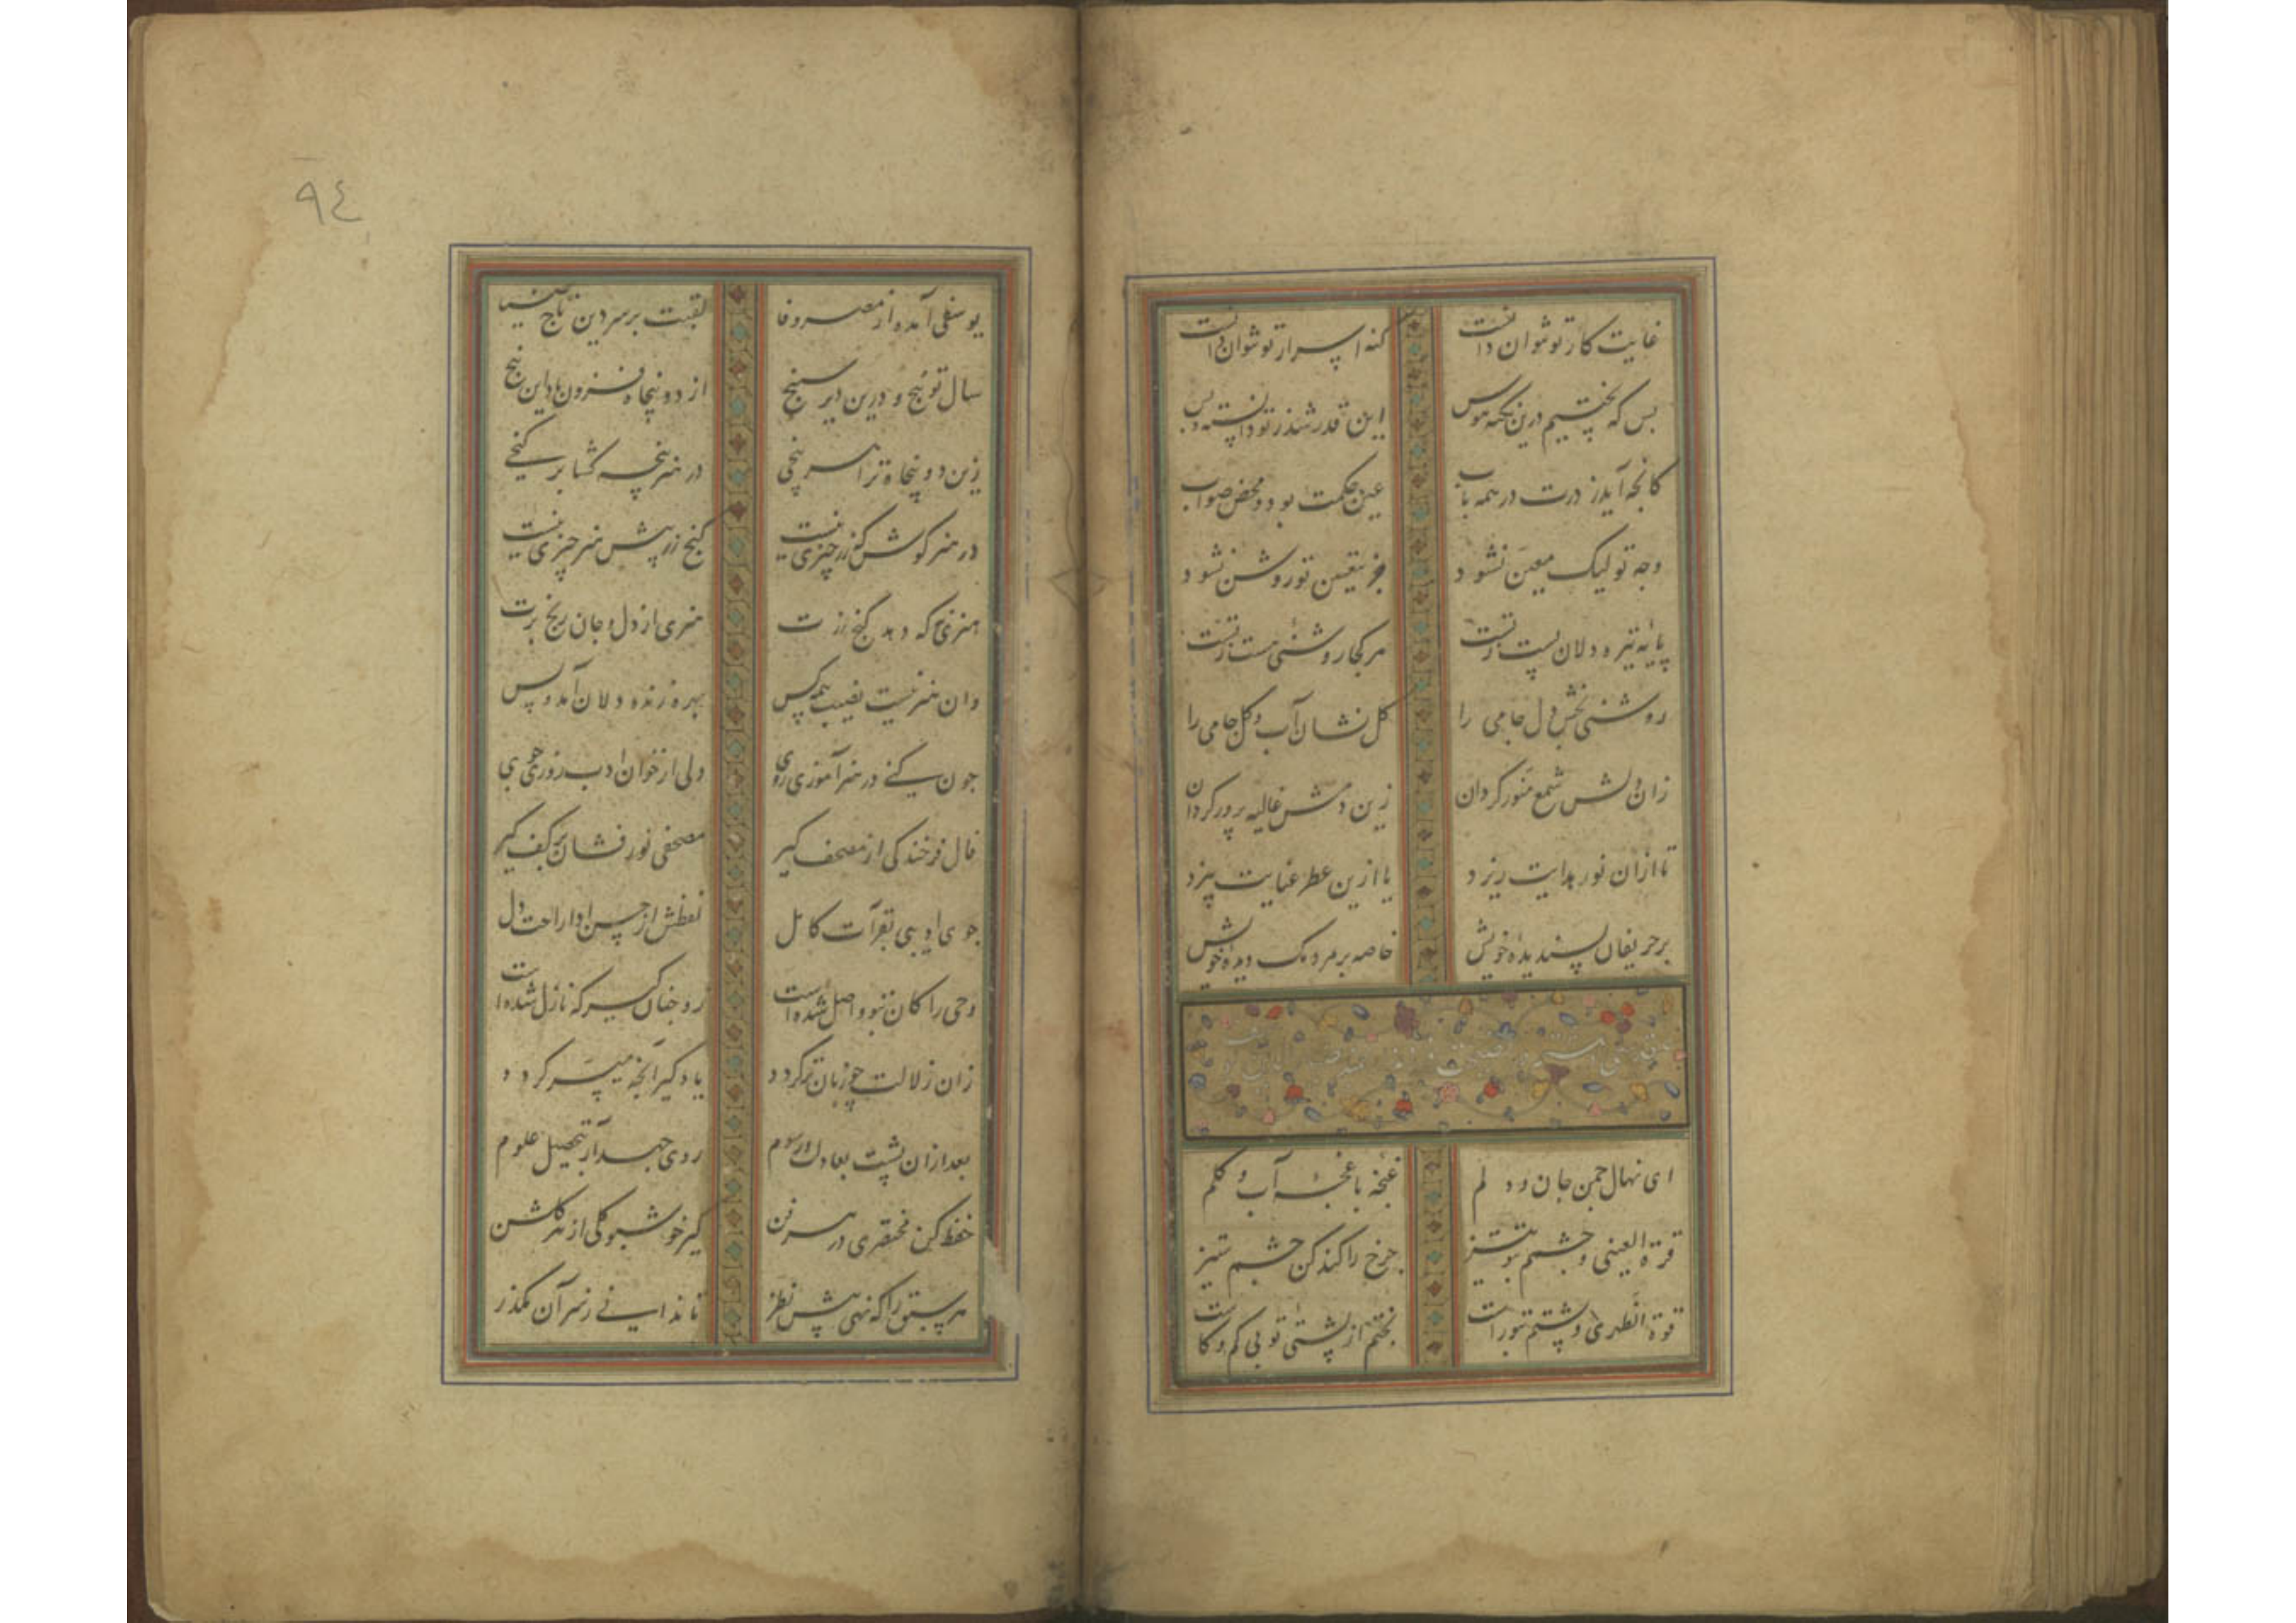 غایت کار تو نتوان دانست کنه اسرار تو نتوان دانست
بس که پختیم درین نکته هوس این قدر شد ز تو دانسته و بس
کانچه آید ز درت در همه باب عین حکمت بود و محض صواب
وجه تو لیک معین نشود جز بتعیین تو روشن نشود
پایه تیره دلان پست ز تست هر کجا روشنیی هست ز تست
روشنی بخش دل جامی را گل نشان آب و گل جامی را
زان دلش شمع منور گردان زین دمش غالیه پرور گردان
تا ازان نور هدایت ریزد یا ازین عطر عنایت بیزد
بر حریفان پسندیده خویش خاصه بر مردمک دیده خویش
ای نهال چمن جان و دلم غنچه باغچه آب و گلم
قرة العینی و چشم بتو تیز چرخ را کند کن چشم ستیز
قوة الظهری و پشتم بتو راست بختم از پشتی تو بی کم و کاست
٩٤
یوسفی آمده از مصر وفا لقبت بر سر دین تاج ضیا
سال تو پنج و درین دیر سپنج از دو پنجاه فزون باد این پنج
زین دو پنجاه ترا هر پنجی در هنر پنجه گشا بر گنجی
در هنر کوش که زر چیزی نیست گنج زر پیش هنر چیزی نیست
هنری نی که دهد گنج زرت هنری از دل و جان رنج برت
وان هنر نیست نصیب همه کس بهره زنده دلان آمد و بس
چون کنی در هنر آموزی روی ولی از خوان ادب روزی جوی
فال فرخندگی از مصحف گیر مصحفی نور فشان بر کف گیر
جوی ادیبی بقرآت کامل لفظش از حسن ادا راحت دل
وحی را کان بنبی واصل شده است رو چنان گیر که نازل شده است
زان زلالت چو زبان تر گردد یاد گیر آنچه میسر گردد
بعد ازان پشت بعادات و رسوم روی جهد آر بتحصیل علوم
حفظ کن مختصری در هر فن گیر خوشبو گلی از هر گلشن
هر سبق را که نهی پیش نظر تا ندانی ز سر آن مگذر